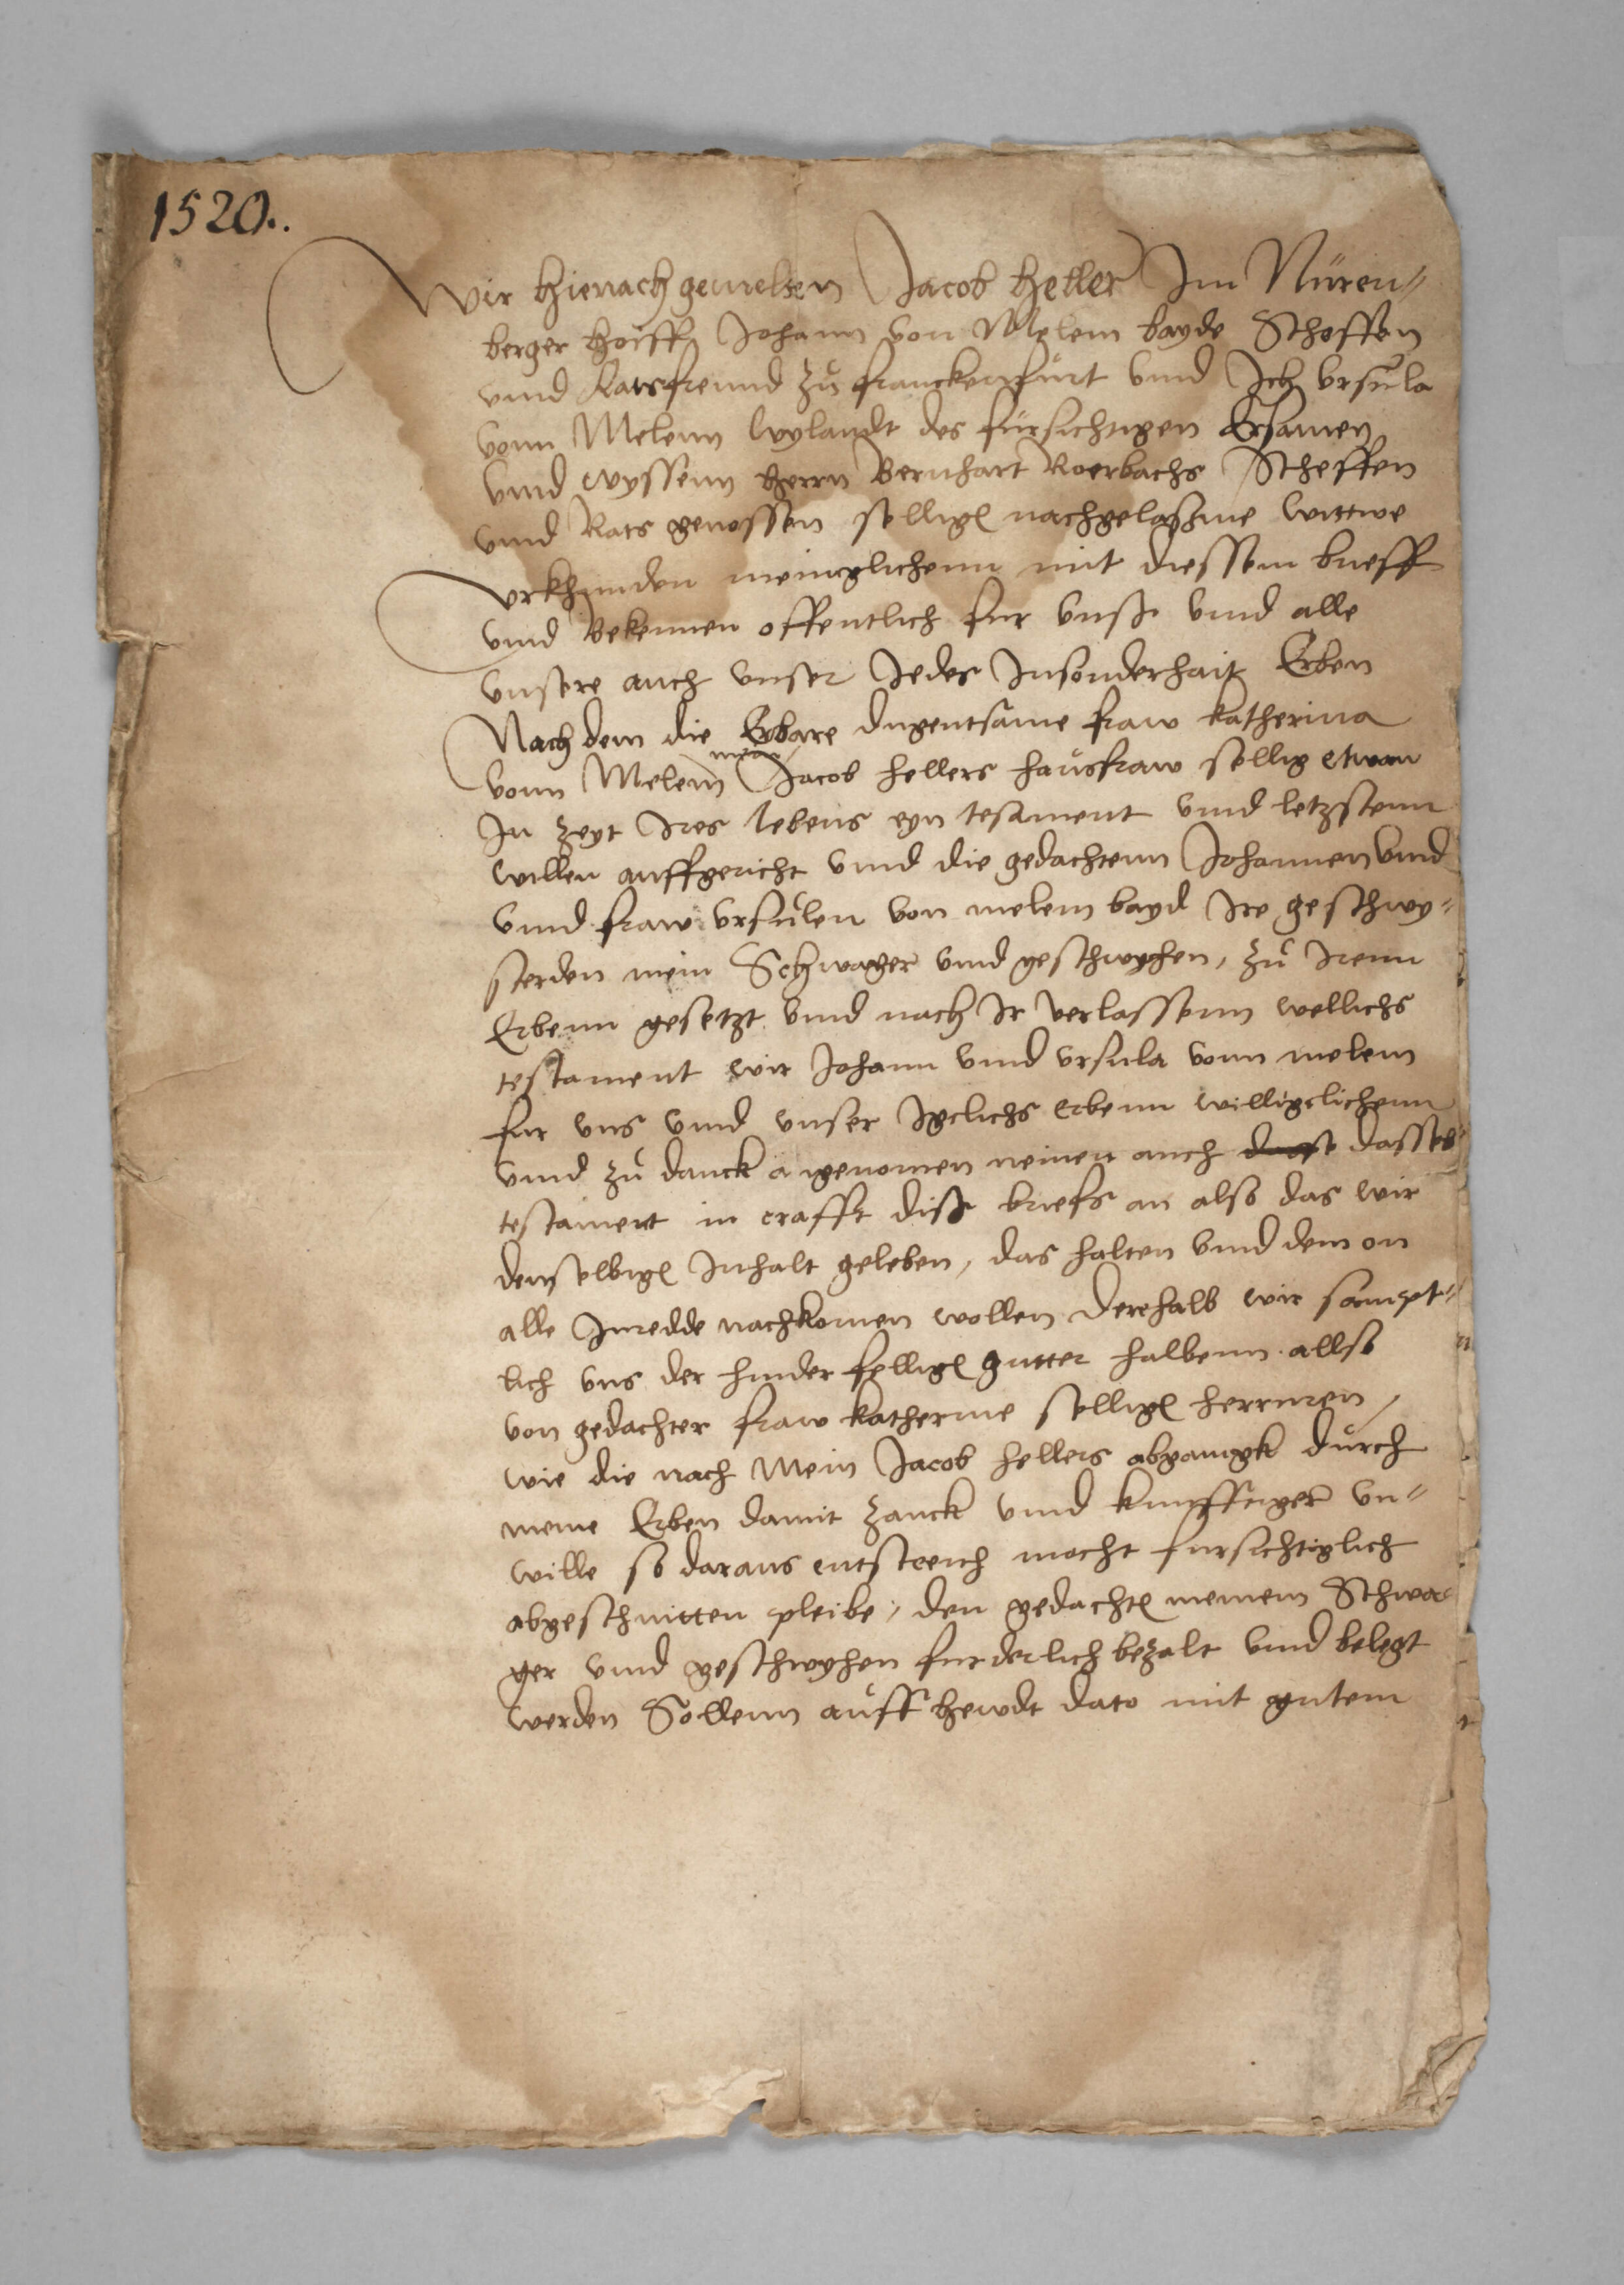 1520..
Wir hienach gemelten Jacob heller Im Nüren„
berger hoiff Johann von Melem bayde Scheffen
vnnd Ratsfreund zů franckennfůrt vnnd Ich vrsůla
vonn Melenn wylandt des fürsichtigen Ersamen
vnnd wyssenn herrn Bernhart Roerbachs Scheffen
vnnd Rats genossen sellige nachgelaszne wittwe
vrkhunden meinglichenn mit diessem brieff
vnnd Bekennen offentlich fur vnsz vnnd alle
vnsere auch vnser Jedes Insonderhait Erben
Nach dem die Erbare dugentsame fraw katherina
mein
vonn Melem Jacob hellers haůsfraw sellig etwan
In zeyt Ires lebens eyn tesament vnnd letzstenn
willen auffgericht vnnd die gedachtenn Johannen vnnd
vnnd fraw vrsůlen von melem bayd Ire geschwy„
sterden mein Schwager vnnd geschwyhen, zů Irenn
Erbenn gesetzt vnnd nach Ir verlassenn wellichs
testament wir Johann vnnd vrsula vonn melem
fur vns vnnd vnser Igclichs erbenn willigclichenn
vnnd zů danck a ngenomen neinen auch dasselb
testament in crafft disz briefs an also das wir
demselbige Inhalt geleben, das halten vnnd dem on
alle Inredde nachkomen wollen derehalb wir sampt„
lich vns der hinder fellige gutter halbenn allso
von gedachter fraw katherine sellige herruren,
wie die nach Mein Jacob hellers abgangk důrch
meine Erben damit zanck vnnd kunfftiger vn„
wille so daraus entsteeich mocht fursichtiglich
abgeschnitten pleibe, den gedachte meinem Schwa„
ger vnnd geschwyhen furderlich bezalt vnnd belegt
werden Sollenn aůff hewdt dato mit gutem